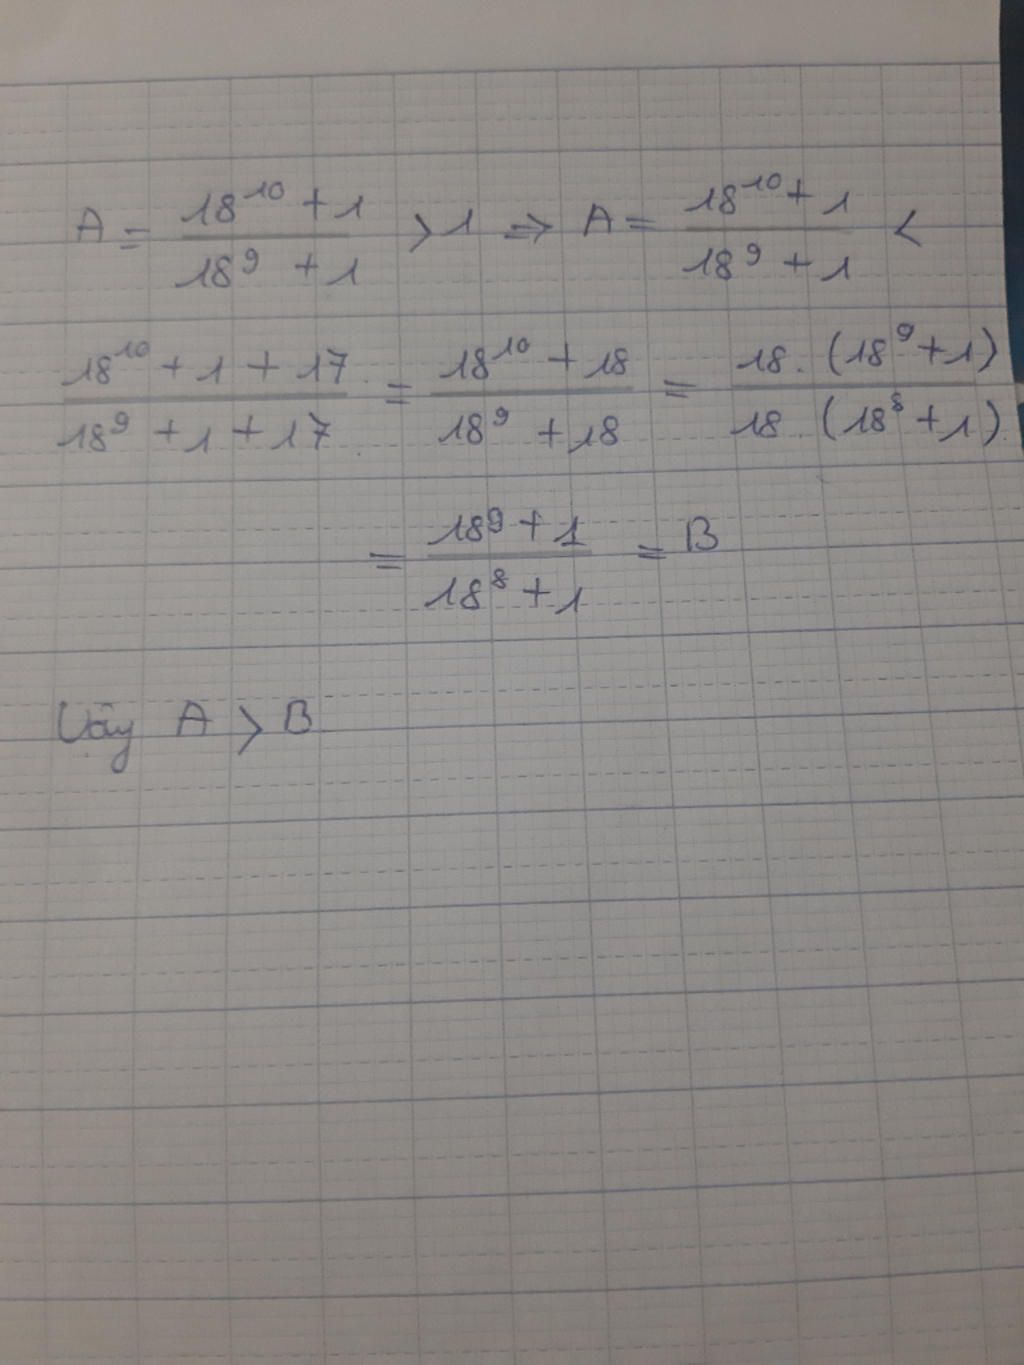 A = \frac{18^{10} + 1}{18^9 + 1} > 1 ⇒ A = \frac{18^{10} + 1}{18^9 + 1} <
\frac{18^{10} + 1 + 17}{18^9 + 1 + 17} = \frac{18^{10} + 18}{18^9 + 18} = \frac{18 . (18^9 + 1)}{18 . (18^8 + 1)}
= \frac{18^9 + 1}{18^8 + 1} = B
Vậy A > B